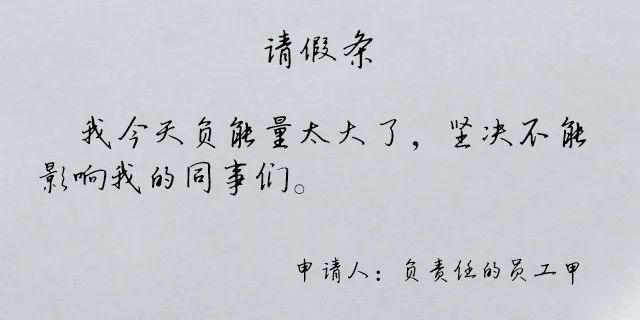 请假条
我今天负能量太大了，坚决不能
影响我的同事们。
申请人：负责任的员工甲